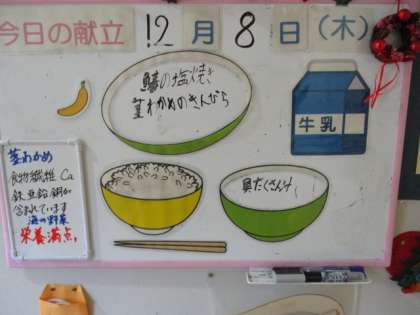 今日の献立 12月8日(木)
鰆の塩焼き
茎わかめのきんぴら
牛乳
具だくさん汁
茎わかめ
食物繊維 Ca
鉄 亜鉛 銅が
含まれています
海の野菜
栄養満点!